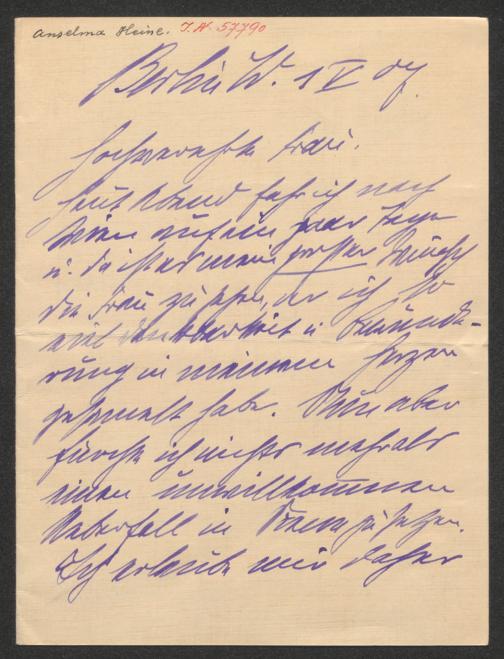 Anselma Heine. I.N. 57790
Berlin W. 1 V 07
Hochverehrte Frau.
Heut Abend fahr ich nach
Wien auf ein paar Tage
u. da ist es mein grosser Wunsch
die Frau zu sehen, der ich so
viel Dankbarkeit u. Bewunde-
rung in meinem Herzen
gesammelt habe. Nun aber
fürchte ich nichts mehr als
einen unwillkommenen
Ueberfall in Szene zu setzen.
Ich erlaube mir daher